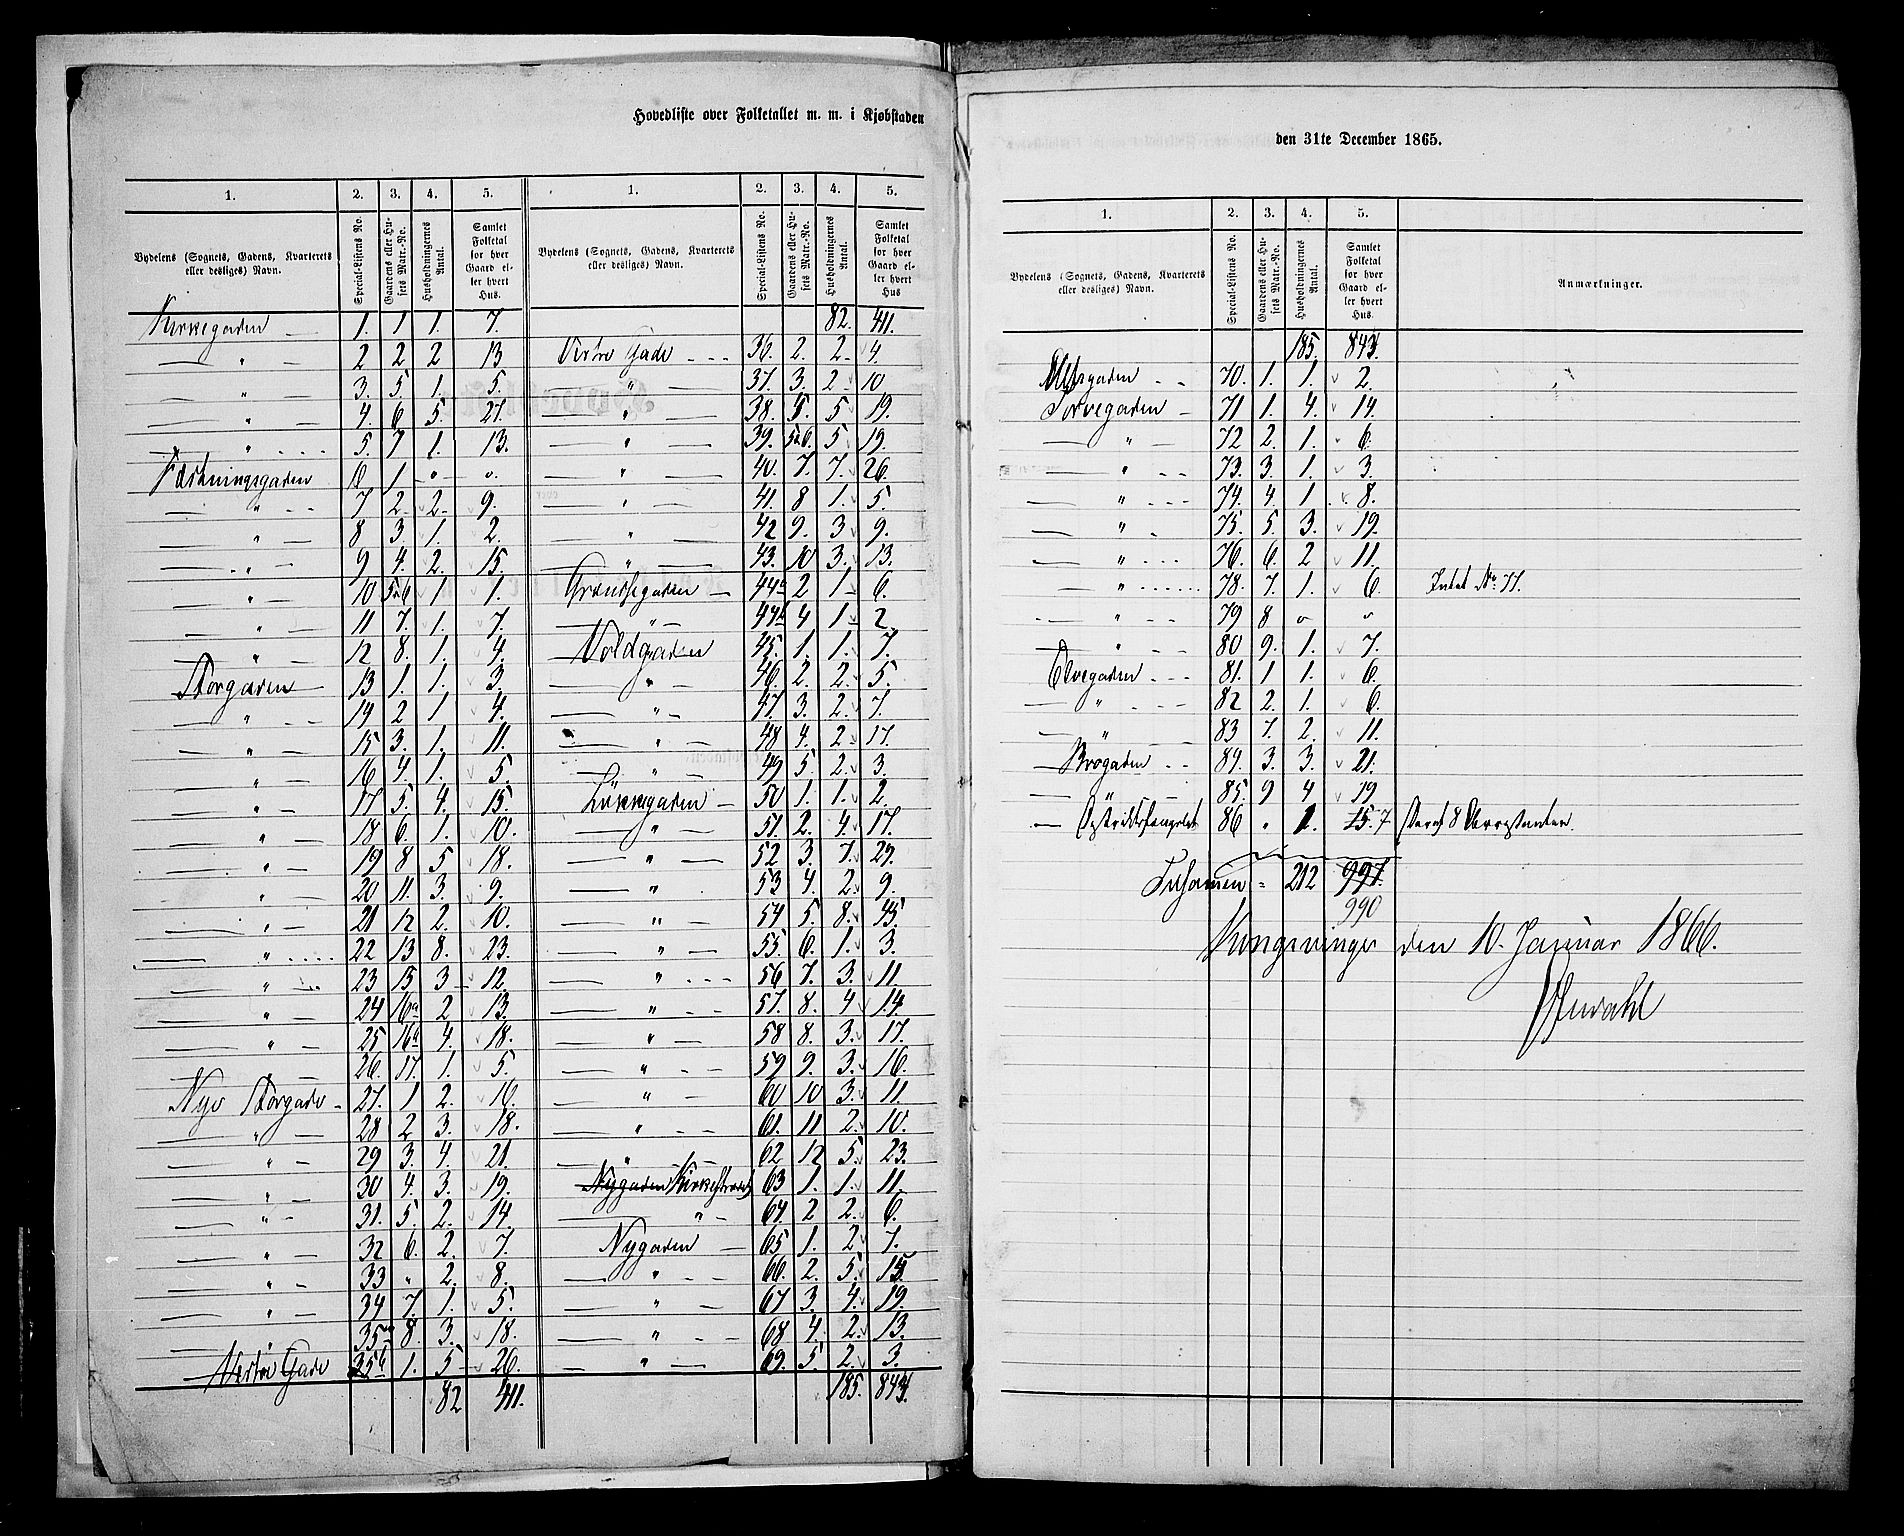 Hovedliste over Folketallet m. m. i Kjøbstaden
1. 2. 3. 4. 5. 1. 2. 3. 4. 5.
Bydelens (Sognets, Gadens, Kvarterets eller desliges) Navn. Special-Listens No. Gaardens eller Husets Matr.-No. Husholdningernes Antal. Samlet Folketal for hver Gaard eller hvert Hus. Bydelens (Sognets, Gadens, Kvarterets eller desliges) Navn. Special-Listens No. Gaardens eller Husets Matr.-No. Husholdningernes Antal. Samlet Folketal for hver Gaard eller hvert Hus
Kirkegaden — 1. 1 1. 7. 82. 411.
— " — 2 2 2 13 Vestre Gade - - - 36. 2. 2. 4.
— " — 3. 5 1. 5. — " — 37. 3. 2 10
— " — 4. 6 5. 21. — " — 38. 5 19.
— " - - - 5. 7 1. 13. — " — 39. 5&6. 5 19.
Fæstningsgaden 6 1 " 0. — " — 40. 7. 7. 26.
— " - - 7 2 2. 9. — " — 41. 8 1. 5.
— " — 8 3. 1. 2. — " — 42 9. 3 9.
— " — 9 4. 2. 15. — " — 43. 10 3. 13.
— " — 10 5&6 1 1. Grændsegaden — 44a 2 1 6.
— " — 11 7. 1. 7. — " — 44b 4 1 2.
— " — 12 8. 1. 4. Voldgaden 45. 1. 1. 7.
Storgaden — 13 1. 1. 3. — " — 46. 2. 2. 5.
— " - - 14 2 1. 4. — " — 47. 3. 2. 7.
— " — 15 3. 1. 11. — " — 48 4. 2 17.
— " — 16 4. 1. 5. — " — 49 5. 2. 3.
— " — 17 5. 4. 15. Løkkegaden — 50 1. 1. 2.
— " — 18 6. 1. 10. — " — 51. 2. 4. 17.
— " — 19 8 5 18. — " — 52 3. 7. 29.
— " — 20 11. 3. 9. — " . 53 4. 2. 9.
— " — 21 12 2. 10. — " — 54 5. 8. 45.
— " - - - - 22 13 8. 23. — " — 55. 6. 1. 3.
— " — 23 15 3 12. — " - - - 56 7. 3. 11
— " — 24 16a 2 13. — " — 57. 8. 4 14.
— " — 25 16b 4. 18. — " — 58 8. 3. 17.
— " — 26. 17. 1. 5. — " — 59 9. 3. 16.
Nye Storgade - 27. 1 2. 16. — " — 60 10 3. 11.
— " — 28 2 3. 18. — " - - 61. 11 2. 10.
— " — 29 3. 4. 21. — " — 62 12 5. 23.
— " — 30 4. 3. 19. Nygaden 63 1. 1. 11.
— " - 31. 5. 2. 14. — " 64. 2 2. 6.
— " — 32 6. 2. 7. Nygaden — 65 1. 2 7.
— " — 33 " 2. 8. — " - — 66. 2. 5. 15.
— " — 34 7. 1. 5. — " — 67 3. 4. 19.
" 35a 8. 3. 18. — " — 68 4. 2. 13.
Vestre Gade 35b 1. 5 26. — " — 69. 5. 2. 3.
82 411. 185. 843.
den 31te December 1865.
1. 2. 3. 4. 5.
Bydelens (Sognets, Gadens, Kvarterets eller desliges) Navn. Special-Listens No. Gaardens eller Husets Matr.-No. Husholdningernes Antal. Samlet Folketal for hver Gaard eller hvert Hus. Anmærkninger.
185. 843.
70. 1. 1. 2.
Torvegaden — 71 1 4. 14.
— " — 72 2. 1. 6.
— " - 73. 3. 1. 3.
— " - - - 74. 4. 1. 8.
— " - 75. 5. 3. 19.
— " - - - 76. 6. 2 11.
— " - - - - - - 78. 7. 1. 6 Intet No 77.
- " - - 79 8 0 0
— " — 80 9. 1. 7.
Elvegaden - - - 81. 1 1. 6.
— " - - - 82 2. 1. 6.
— " — 83 7. 2. 11.
Brogaden - - 84. 3. 3. 21.
— " — 85. 9 4 19
— Distriktsfængslet 86 " 1. 15. 7 Deraf 8 Arrestanter.
Tilsammen = 212 997.
990
Kongsvinger den 10. Januar 1866.